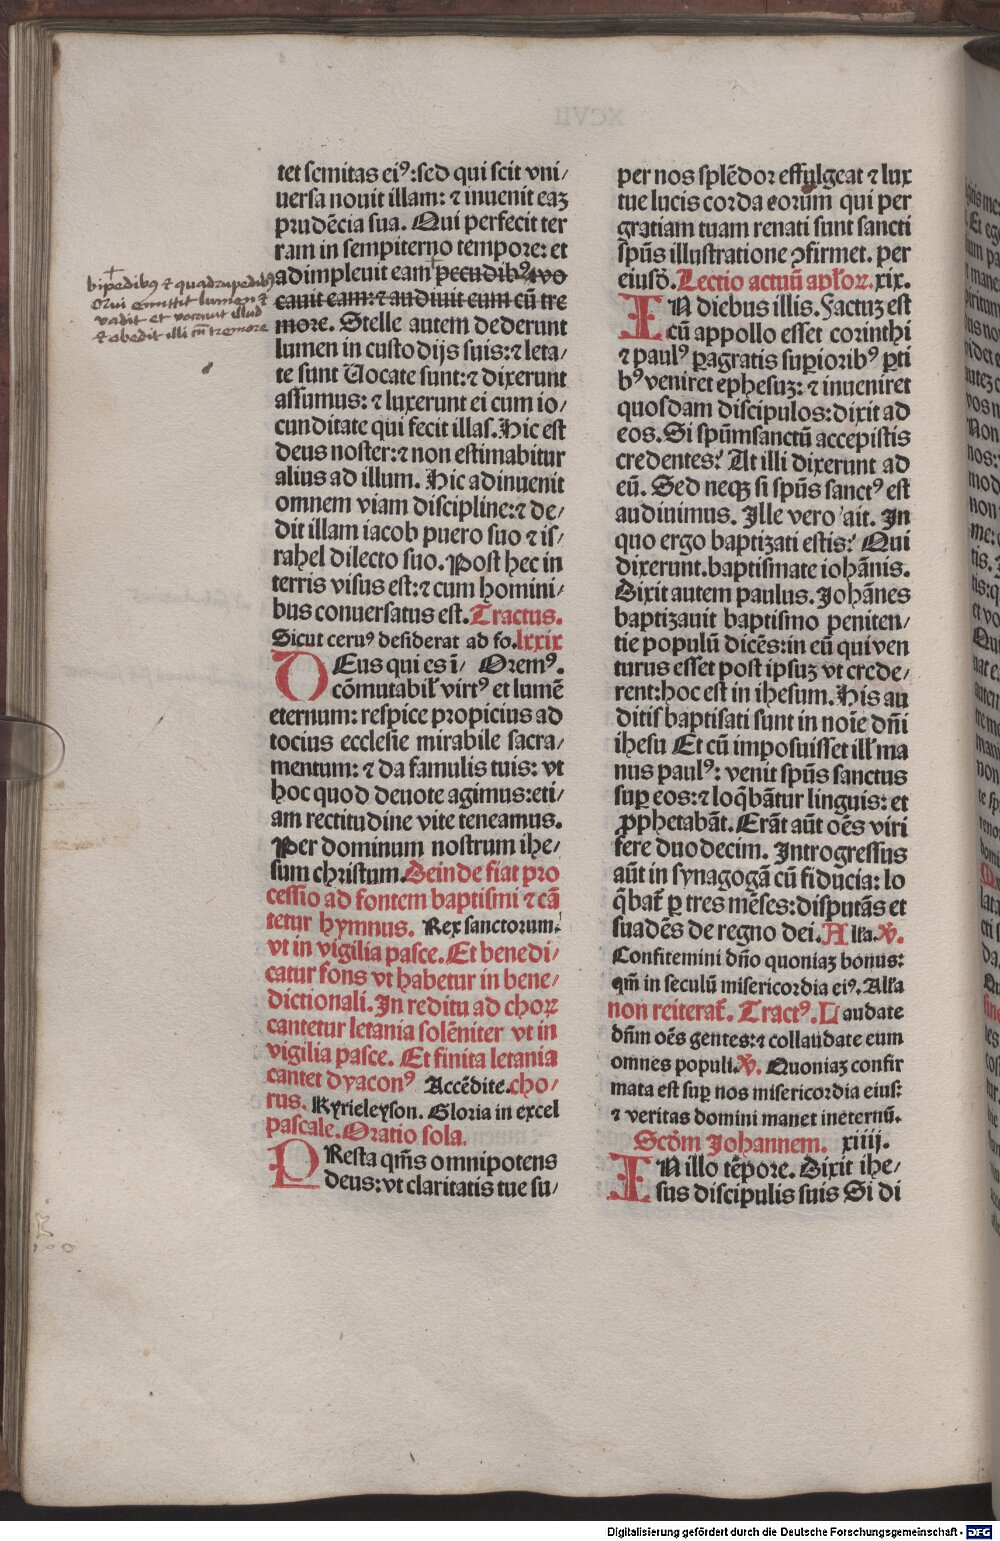 tet semitas ei⁹:sed qui scit vni/
uersa nouit illam: ⁊ inuenit eaʒ
prudẽcia sua. Qui perfecit ter
ram in sempiterno tempore: et
adimpleuit eam pecudib⁹ ⁊ vo
cauit eam: ⁊ audiuit eum cũ tre
more. Stelle autem dederunt
lumen in custodijs suis: ⁊ leta/
te sunt Uocate sunt: ⁊ dixerunt
assumus: ⁊ luxerunt ei cum io/
cunditate qui fecit illas. Hic est
deus noster: ⁊ non estimabitur
alius ad illum. Hic adinuenit
omnem viam discipline: ⁊ de/
dit illam iacob puero suo ⁊ is/
rahel dilecto suo. Post hec in
terris visus est: ⁊ cum homini/
bus conuersatus est. Tractus.
Sicut ceru⁹ desiderat ad fo. lxxix
DEus qui es ĩ/ Orem⁹.
cõmutabil' virt⁹ et lumẽ
eternum: respice propicius ad
tocius ecclesie mirabile sacra/
mentum: ⁊ da famulis tuis: vt
hoc quod deuote agimus: eti/
am rectitudine vite teneamus.
Per dominum nostrum ihe/
sum christum. Deinde fiat pro
cessio ad fontem baptismi ⁊ cã
tetur hymnus. Rex sanctorum:
vt in vigilia pasce. Et benedi/
catur fons vt habetur in bene/
dictionali. In reditu ad choꝝ
cantetur letania solẽniter vt in
vigilia pasce. Et finita letania
cantet dyacon⁹ Accẽdite. cho/
rus. Kyrieleyson. Gloria in excel
pascale. Oratio sola.
PResta qm̃s omnipotens
deus: vt claritatis tue su/
bipedib⁹ ⁊ quadrupedib⁹
Qui emittit lumen ⁊
vadit et vocauit illud
⁊ obedit illi cũ tremore
per nos splẽdor effulgeat ⁊ lux
tue lucis corda eorum qui per
gratiam tuam renati sunt sancti
spũs illustratione ꝯfirmet. per
eiusđ. Lectio actuũ apl'oꝝ. xix.
IN diebus illis. Factuʒ est
cũ appollo esset corinthi
⁊ paul⁹ ꝑagratis suꝑiorib⁹ ꝑti
b⁹ veniret ephesuʒ: ⁊ inueniret
quosdam discipulos: dixit ad
eos. Si spũmsanctũ accepistis
credentes? At illi dixerunt ad
eũ. Sed neqʒ si spũs sanct⁹ est
audiuimus. Ille vero ait. In
quo ergo baptizati estis? Qui
dixerunt. baptismate iohãnis.
Dixit autem paulus. Johãnes
baptizauit baptismo peniten/
tie populũ dicẽs: in eũ qui ven
turus esset post ipsuʒ vt crede/
rent: hoc est in ihesum. His au
ditis baptisati sunt in noĩe dñi
ihesu Et cũ imposuisset ill' ma
nus paul⁹: venit spũs sanctus
suꝑ eos: ⁊ loq̃bãtur linguis: et
ꝓphetabãt. Erãt aũt oẽs viri
fere duodecim. Introgressus
aũt in synagogã cũ fiducia: lo
q̃bat̃ ꝑ tres mẽses: disputãs et
suadẽs de regno dei. All'a. ℣.
Confitemini dño quoniaʒ bonus:
qm̃ in seculũ misericordia ei⁹. All'a
non reiterat̃. Tract⁹. Laudate
dñm oẽs gentes: ⁊ collaudate eum
omnes populi. ℣. Quoniaʒ confir
mata est suꝑ nos misericordia eius:
⁊ veritas domini manet ineternũ.
Scđm Johannem. xiiij.
IN illo tẽpore. Dixit ihe/
sus discipulis suis Si di
Digitalisierung gefördert durch die Deutsche Forschungsgemeinschaft - DFG